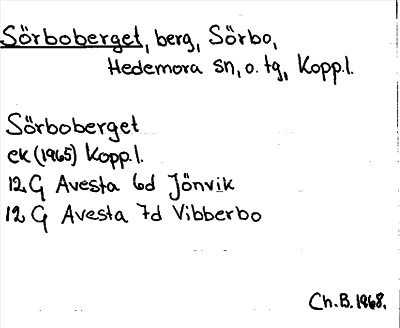 Sörboberget, berg, Sörbo,
Hedemora sn, o. tg, Kopp.l.
Sörboberget
ek (1965) Kopp.l.
12 G Avesta 6d Jönvik
12 G Avesta 7d Vibberbo
Ch.B. 1968.